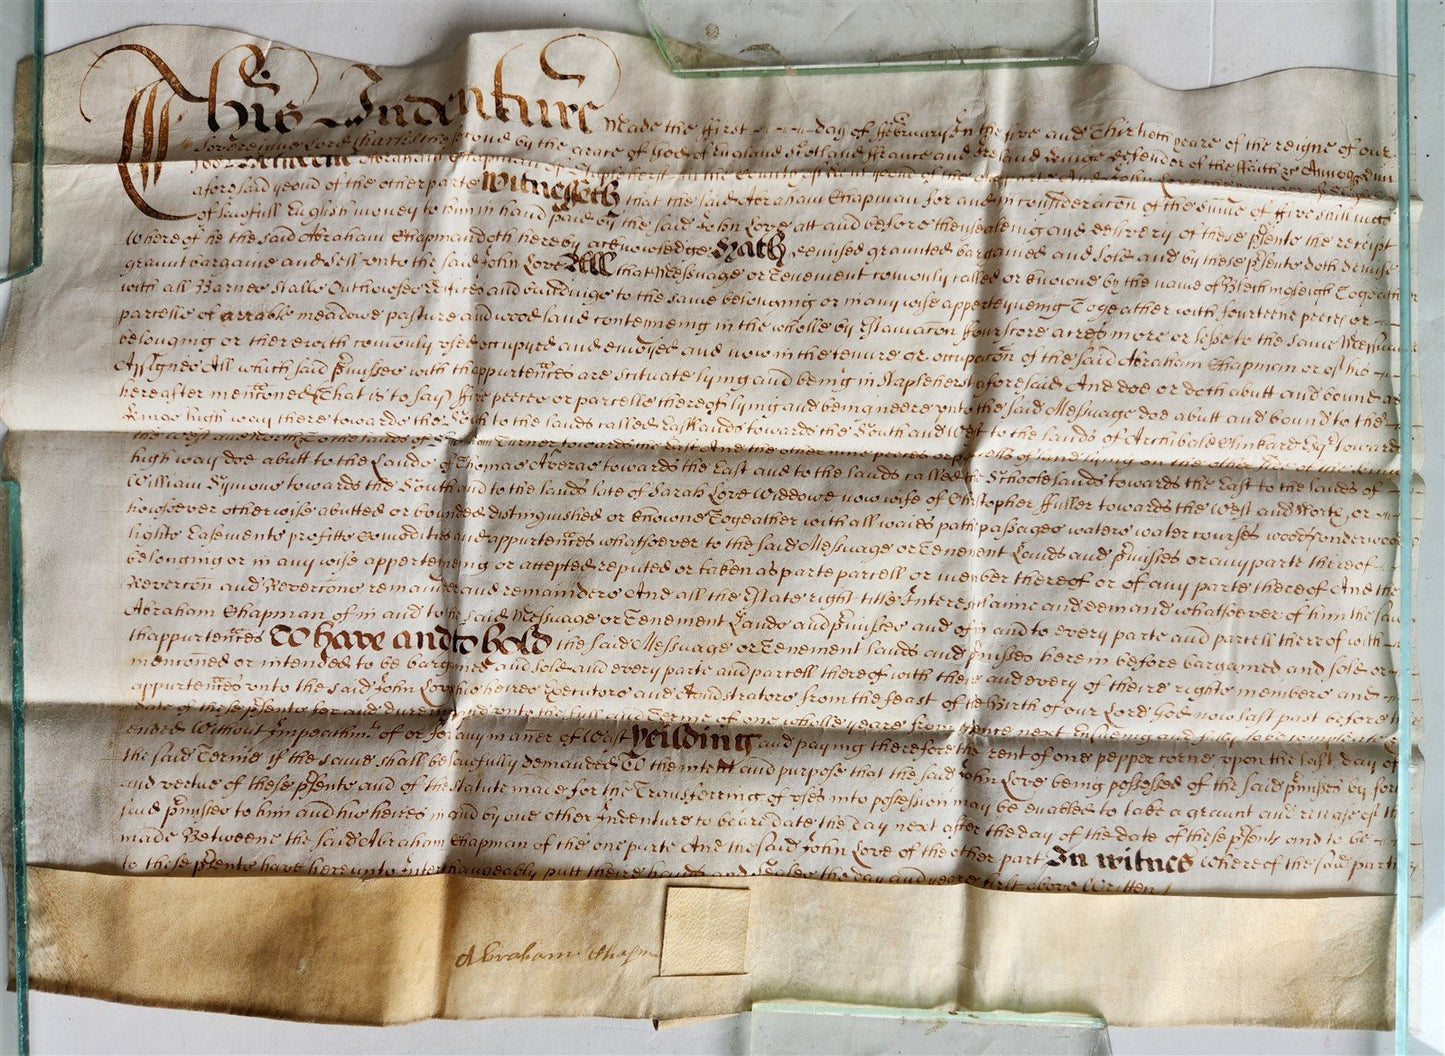 This Indenture Made the first day of February In the five and Thirtieth yeare of the reigne of our
Soveraigne Lord Charles the second by the grace of God of England Scotland ffrance and Ireland Kinge defender of the ffaith &c Annoq Dm
Betweene Abraham Chapman of Staplehurst in the County of Kent yeom of the And John Love
aforesaid yeom of the other parte Witnesseth that the said Abraham Chapman for and in consideracon of the sume of ffive shillings
of lawfull English money to him in hand paid by the said John Love att and before thensealeing and delivery of these p'sents the receipt
whereof he the said Abraham Chapman doth hereby acknowledge Hath demised graunted bargained and sold and by these p'sents doth demise
graunt bargaine and sell unto the said John Love All that Messuage or Tenement comonly called or knowne by the name of Togeather
with all Barnes stalls Outhouses Edifices and buildings to the same belonging or in any wise apperteyneing Togeather with fourteene peeces or
parcells of arrable meadowe pasture and wood land conteineing in the wholle by Estimacon ffourscore acres more or lesse to the same Messuage
belonging or therewith comonly used occupyed and enioyed and now in the tenure or occupacon of the said Abraham Chapman or of his
Assignes All which said p'misses with thappurtences are scituate lying and being in Staplehurst aforesaid And doe or doth abutt and bound as
hereafter menconed (That is to say) five peeces or parcells thereof lying and being neere unto the said Messuage doe abutt and bound to the
Kings high way there towards the North to the lands called Eastlands towards the South and West to the lands of Archibald Clinkard Esqr towards
the West and North To the lands of Turner towards the East And the other nine peeces or parcells of land lying on the other side of the said
high way doe abutt to the Lands of Thomas Averas towards the East and to the lands called the Schoole lands towards the East to the lands of
William Symons towards the South and to the lands late of Sarah Love Widdowe now wife of Christopher ffuller towards the West and North, or
howsoever otherwise abutted or bounded distinguished or knowne Togeather with all waies pathes passages waters water courses woods underwoods
lights Easements profitts comodities and appurtences whatsoever to the said Messuage or Tenement Lands and p'misses or any parte thereof
belonging or in any wise apperteyneing or accepted reputed or taken as parte parcell or member thereof or of any parte thereof And the
Revercon and Revercons remainder and remainders And all the Estate right title Interest claime and demand whatsoever of him the said
Abraham Chapman of in and to the said Messuage or Tenement Lands and p'misses and of in and to every parte and parcell thereof with
thappurtences To have and to hold the said Messuage or Tenement lands and p'misses herein before bargained and sold or
mencioned or intended to be bargained and sold and every parte and parcell thereof with their and every of theire rights members and
appurtences unto the said John Love his heires Executors and Administrators from the feast of the Birth of our Lord God now last past before the
date of these p'sents for and dureing and unto the full end Terme of one wholle yeare from thence next Ensueing and fully to be compleate &
ended Without Impeachmt of or for any maner of Wast Yeilding and paying therefore the rent of one pepper corne upon the last day of
the said Terme if the same shall be lawfully demanded To the intent and purpose that the said John Love being possessed of the said p'misses by force
and vertue of these p'sents and of the Statute made for the Transferring of uses into possession may be enabled to take a graunt and release of the
said p'misses to him and his heires in and by one other Indenture to beare date the day next after the day of the date of these p'sents and to be
made Betweene the said Abraham Chapman of the one parte And the said John Love of the other part In witnes whereof the said parties
to these p'sents have hereunto Interchangeably putt their hands and Seales the day and yeare first above Written
Abraham Chapman